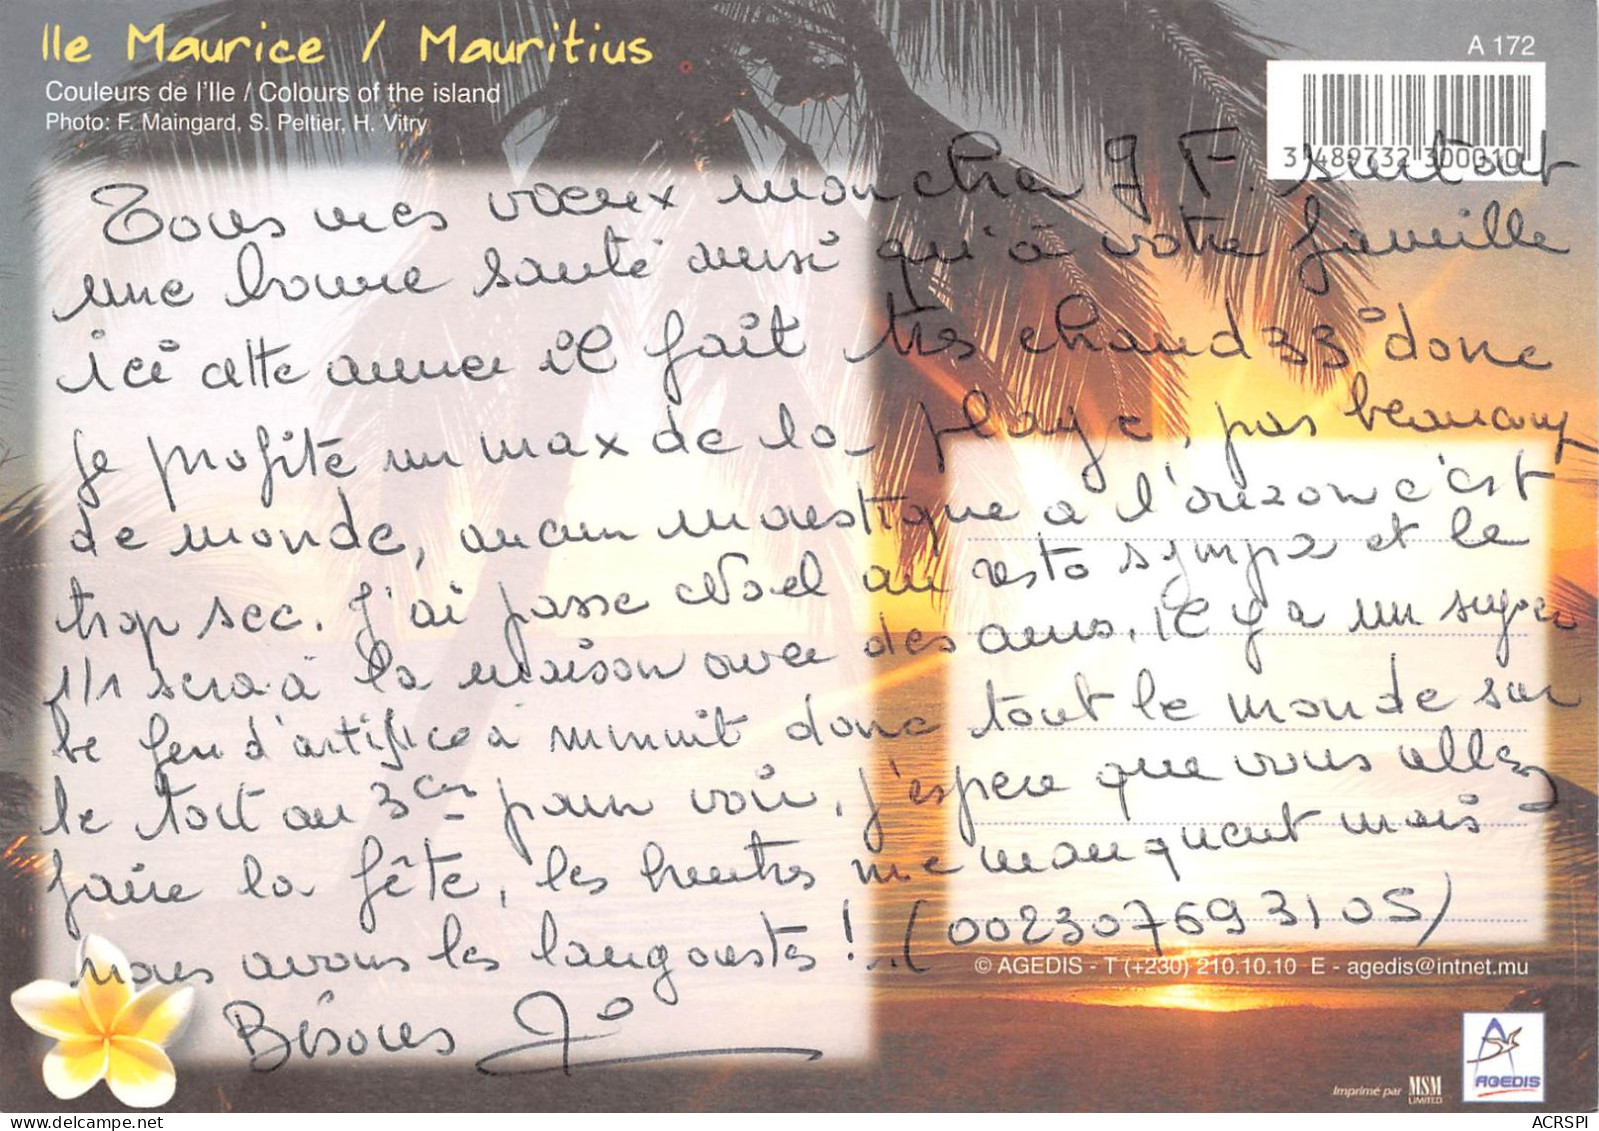 Ile Maurice / Mauritius
Couleurs de l'Ile / Colours of the island
Photo: F. Maingard, S. Peltier, H. Vitry
A 172
3 489732 300010
Tous mes voeux mon cher J F. surtout
une bonne santé ainsi qu'à votre famille
ici cette année il fait très chaud 33° donc
je profite un max de la plage, pas beaucoup
de monde, aucun moustique a l'orizon c'est
trop sec. J'ai passe Noel au resto sympa et le
1/1 sera à la maison avec des amis. Il y a un super
be feu d'artifice à minuit donc tout le monde sur
le toit au 3em pour voir, j'espere que vous allez
faire la fête, les huitres me manquent mais
nous avons les langoustes !.. (002307693105)
Bisous Jo
© AGEDIS - T (+230) 210.10.10 E - agedis@intnet.mu
Imprimé par MSM
LIMITED
AGEDIS
ACRSPI